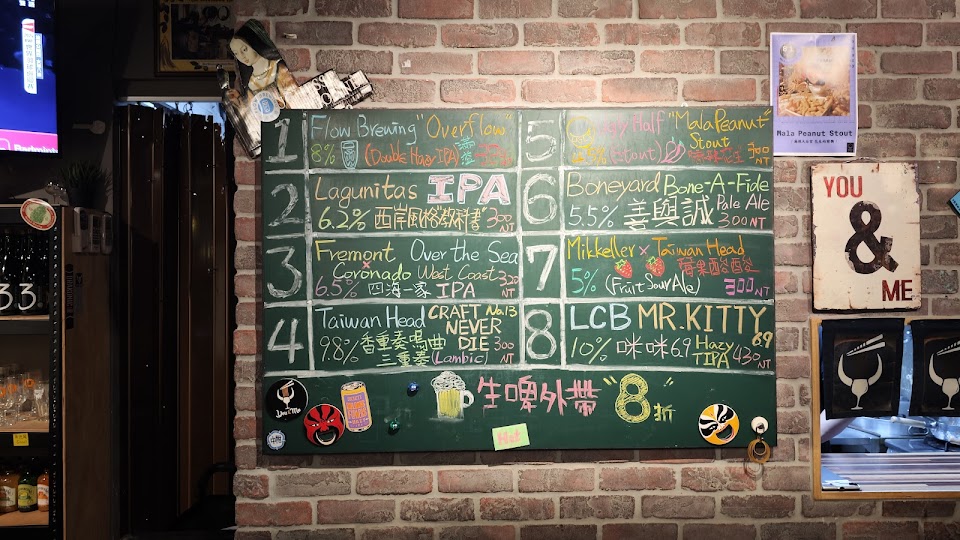 1
Flow Brewing "Overflow"
8% (Double Hazy IPA)
2
Lagunitas IPA
6.2% 西岸風格"教科書" 300 NT
3
Fremont Over the Sea
x Coronado West Coast 320
6.5% 四海一家 IPA NT
4
Taiwan Head CRAFT No.13
NEVER
9.8% 香重奏鳴曲 DIE 300
三重奏 (Lambic) NT
5
Half "Mala Peanut"
Stout
(Stout) 300 NT
6
Boneyard Bone-A-Fide
Pale Ale
5.5% 善與誠 300 NT
7
Mikkeller x Taiwan Head
5% 莓果酸酸
(Fruit Sour Ale) 300 NT
8
LCB MR.KITTY 69
10% 咪咪69 Hazy TIPA 430 NT
生啤外帶 "8" 折
Hot
Mala Peanut Stout
YOU
&
ME
33